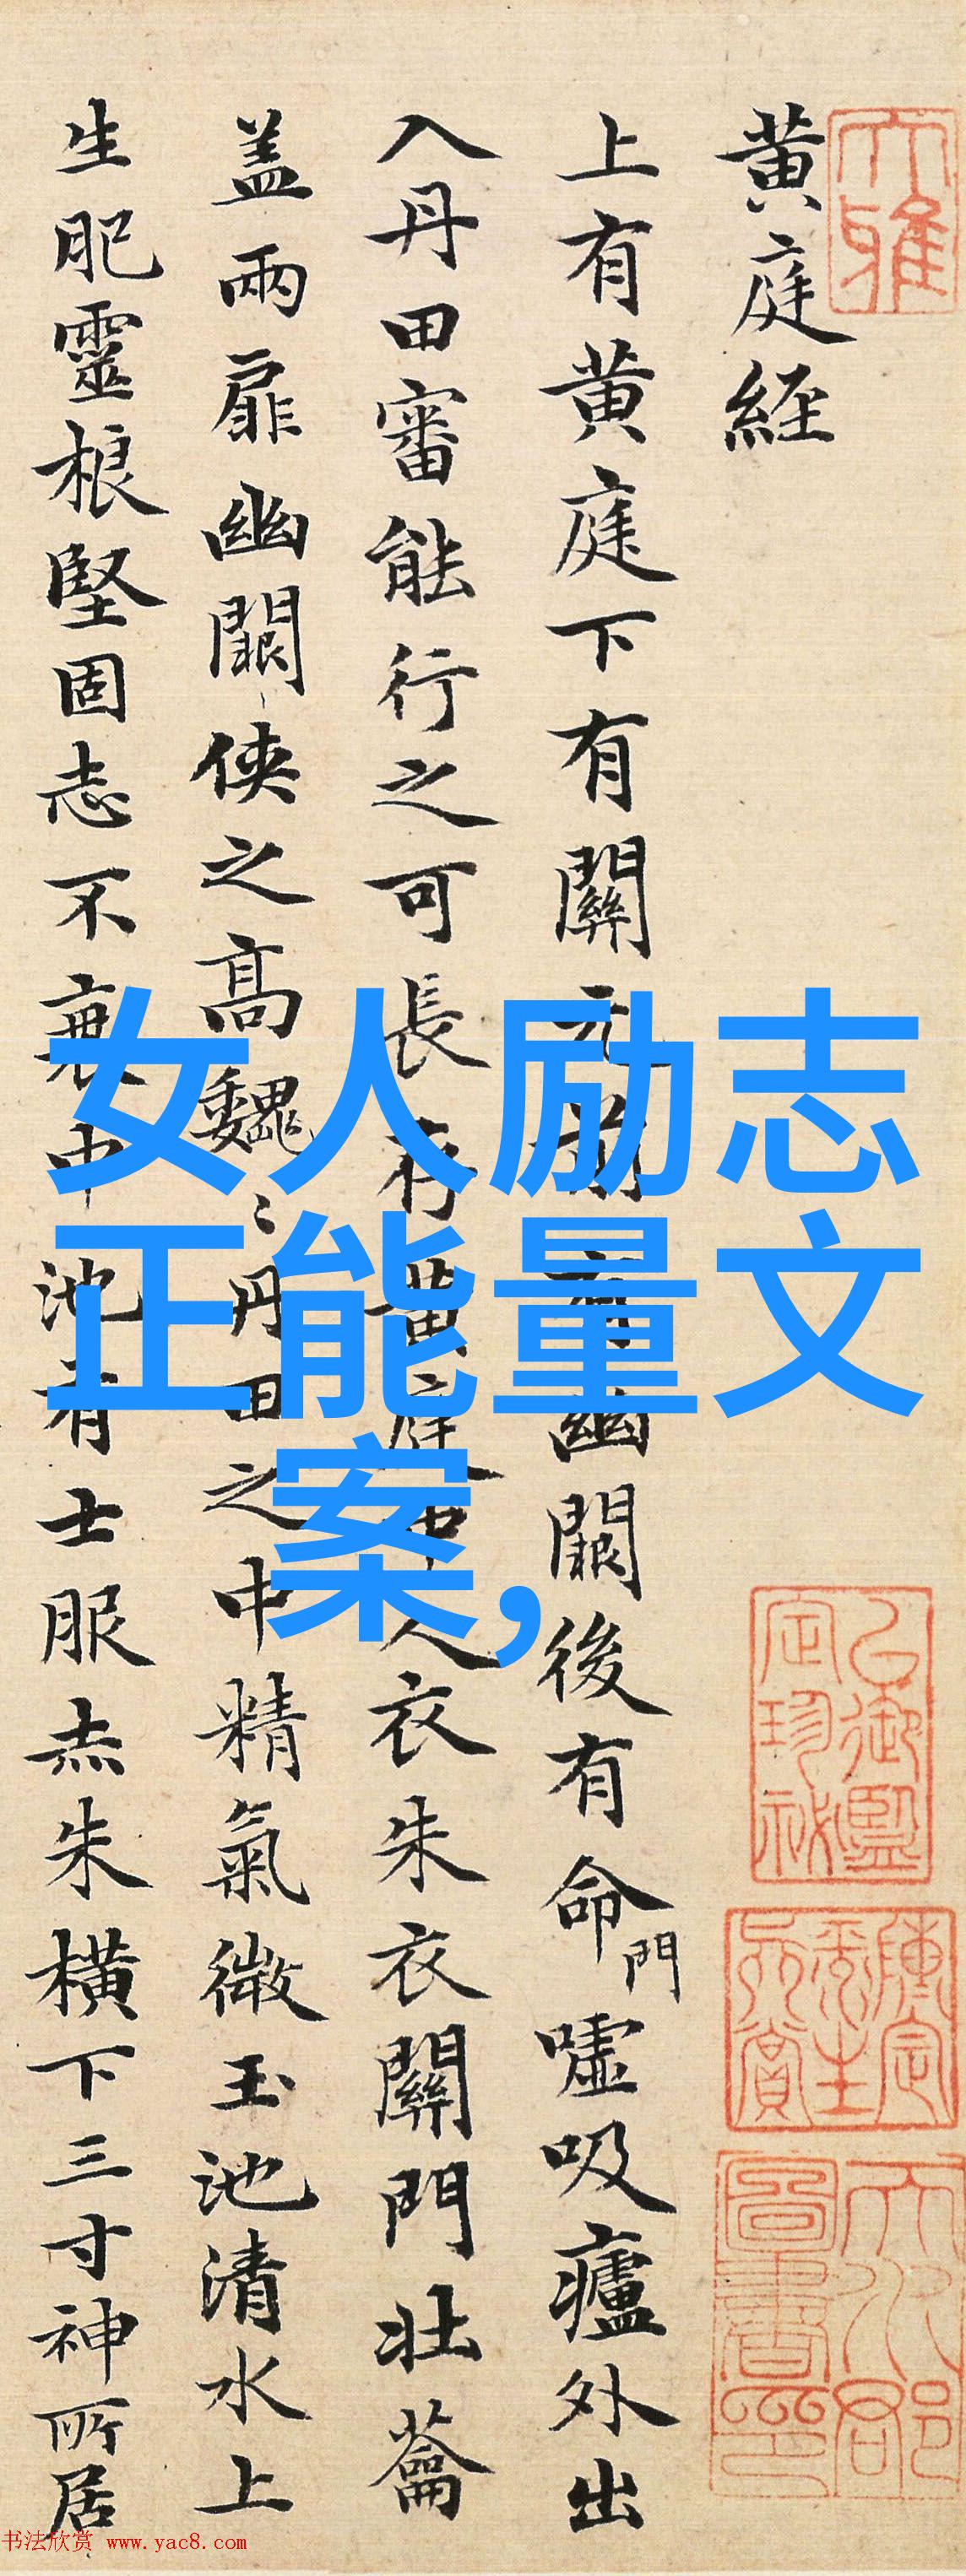 黄庭経
上有黄庭下有關元前有幽闕後有命門噓吸廬外出
入丹田審能行之可長存黄庭中人衣朱衣關門壯蘥
盖兩扉幽闕侠之高魏〻丹田之中精氣微玉池清水上
生肥靈根堅固志不衰中池有士服赤朱横下三寸神所居
女人励志
正能量文
案,
书法欣赏 www.yac8.com